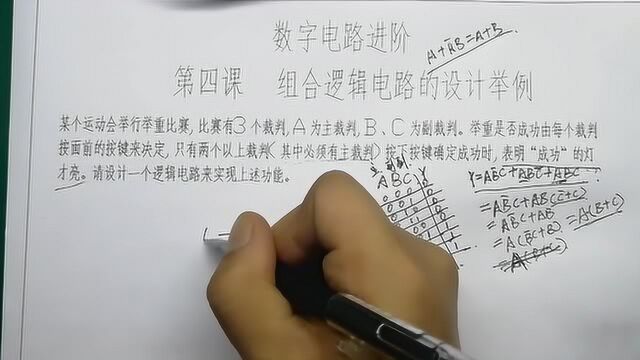 数字电路进阶
A+ĀB=A+B
第四课 组合逻辑电路的设计举例
某个运动会举行举重比赛,比赛有3个裁判,A为主裁判,B、C为副裁判。举重是否成功由每个裁判
按面前的按键来决定,只有两个以上裁判(其中必须有主裁判)按下按键确定成功时,表明“成功”的灯
才亮。请设计一个逻辑电路来实现上述功能。
A B C Y
0 0 0
0 0 1
Y=AB̄C+ABC̄+ABC
=AB̄C+AB(C̄+C)
=AB̄C+AB
=A(B̄C+B)
=A(B+C)